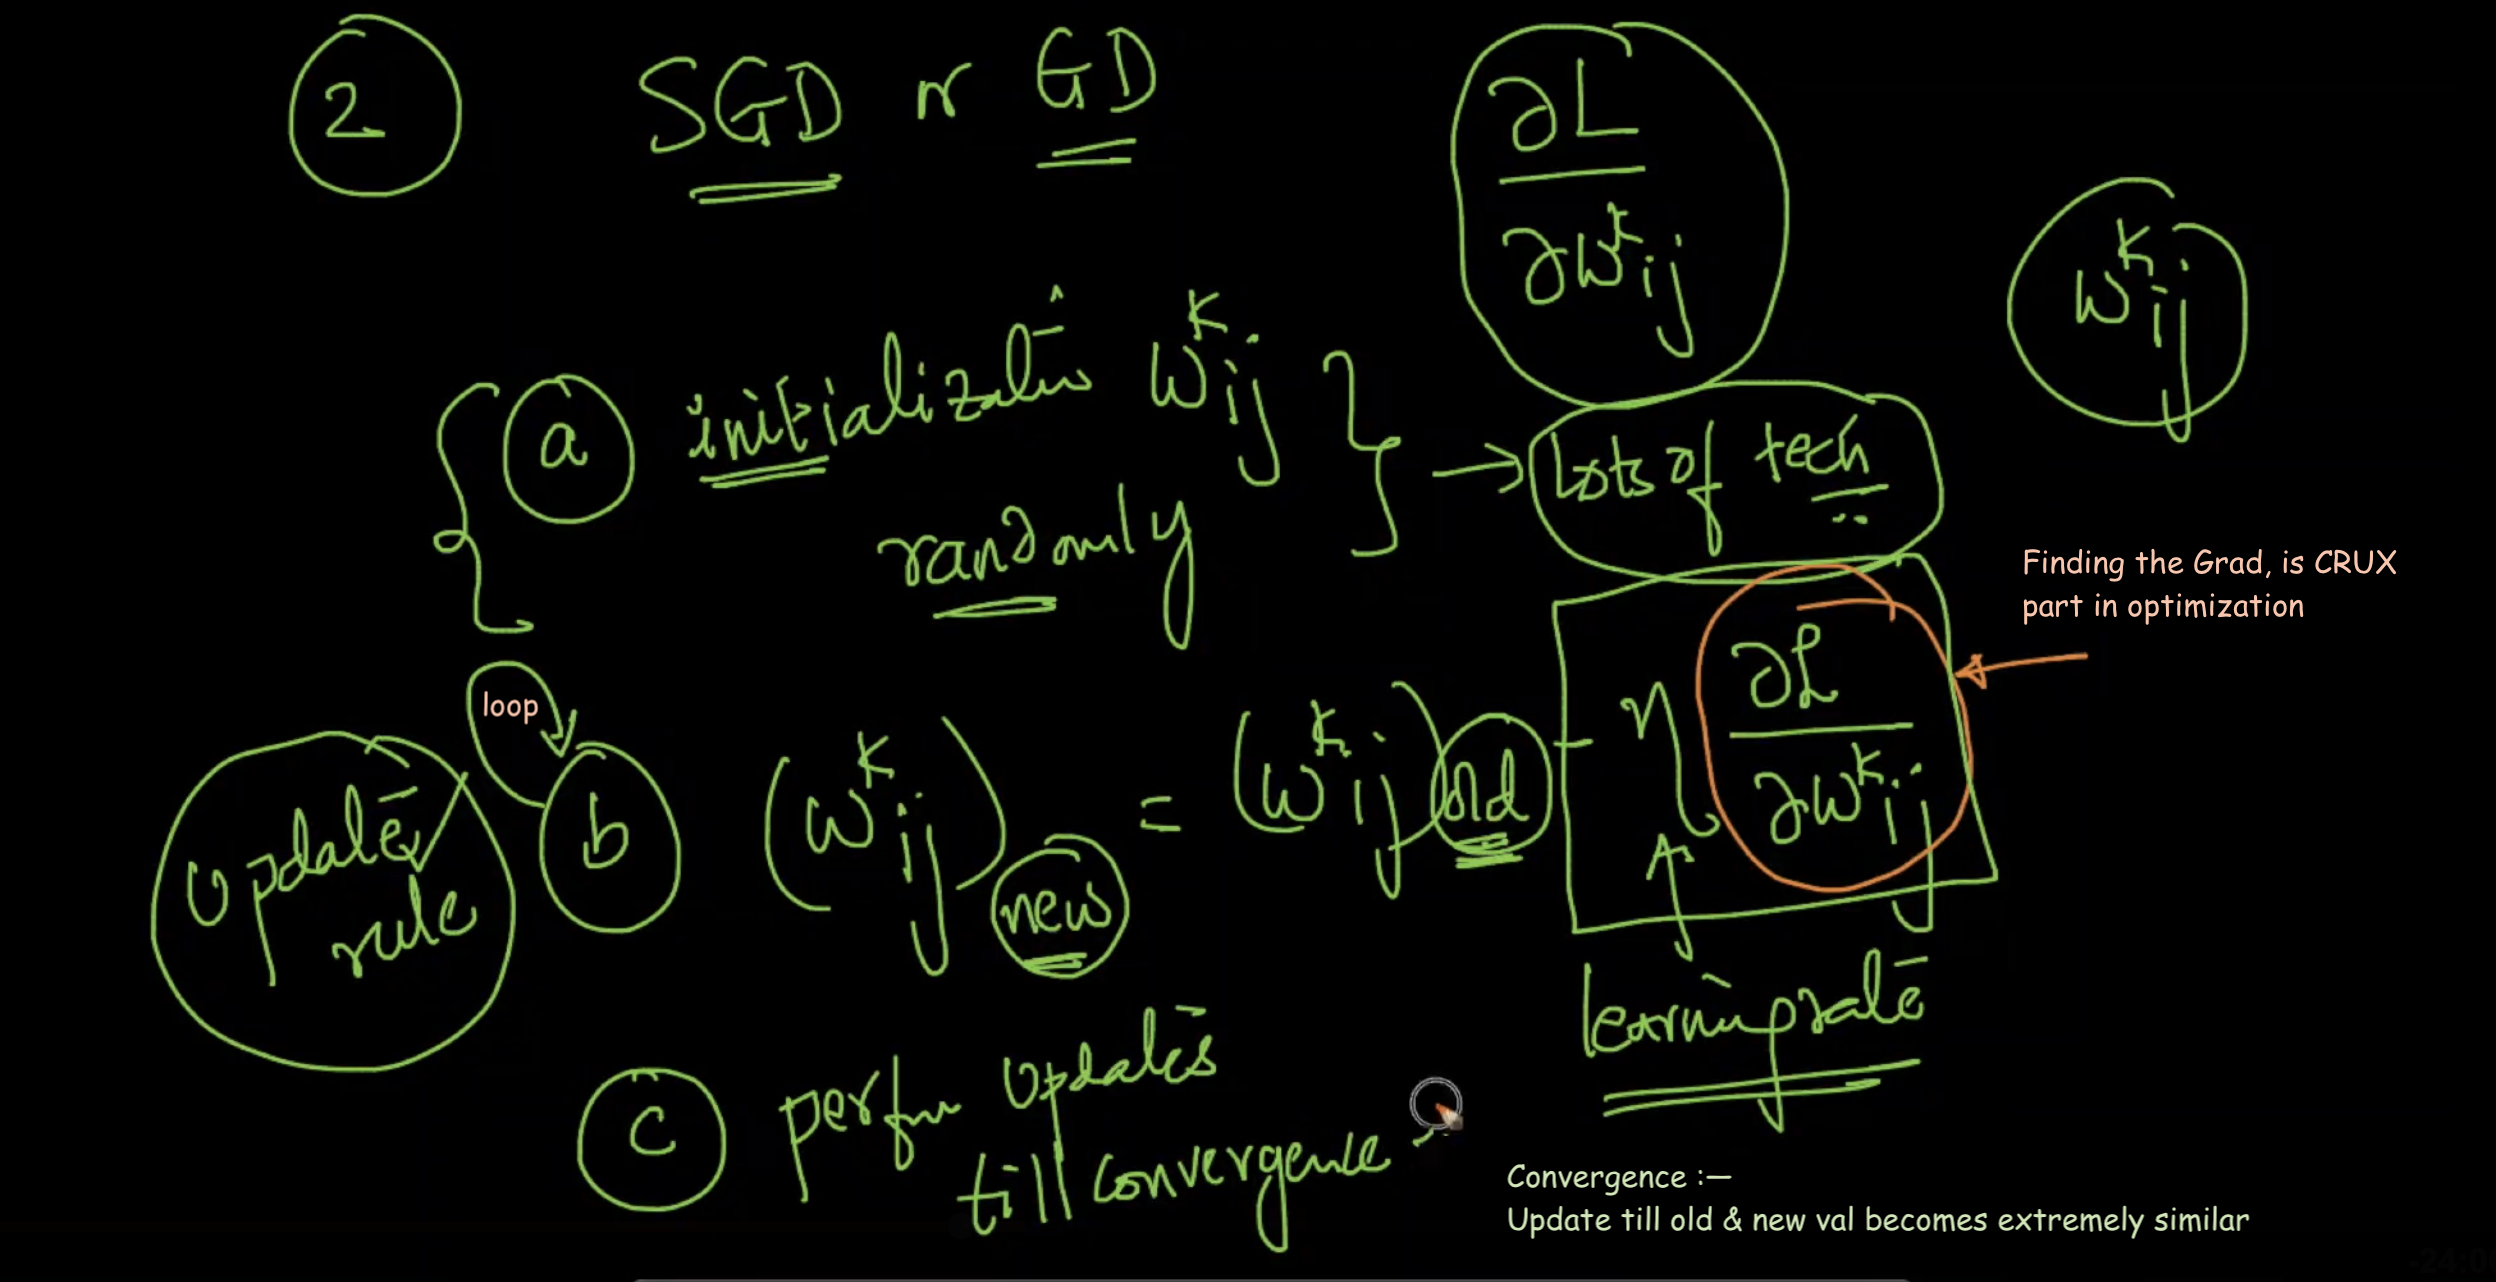 2 SGD or GD
∂L
∂w^k_ij
w^k_ij
a initialization w^k_ij
randomly
→ Lots of tech
Finding the Grad, is CRUX
part in optimization
loop
Update
rule
b (w^k_ij)new = (w^k_ij)old - η ∂L
∂w^k_ij
learning rate
c perform updates
till convergence
Convergence :—
Update till old & new val becomes extremely similar